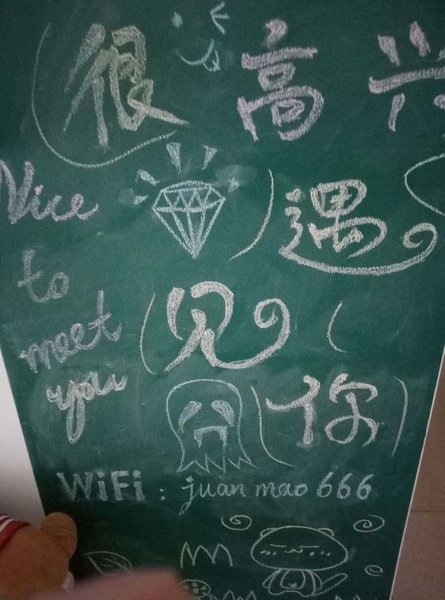 很高兴
Nice
遇
to
见
meet
you
你
WiFi : juan mao 666